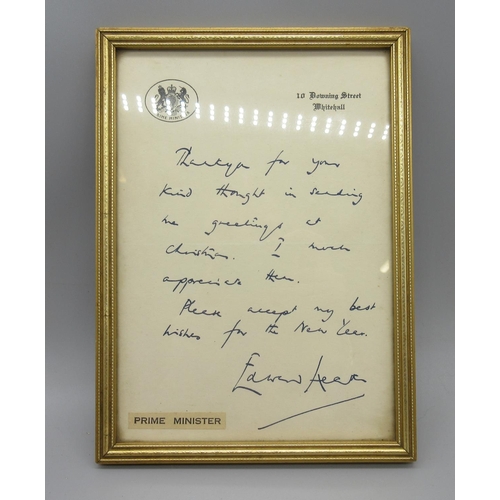 10 Downing Street
Whitehall
Thankyou for your
kind thought in sending
me greetings at
Christmas. I much
appreciate them.
Please accept my best
wishes for the New Year.
Edward Heath
PRIME MINISTER